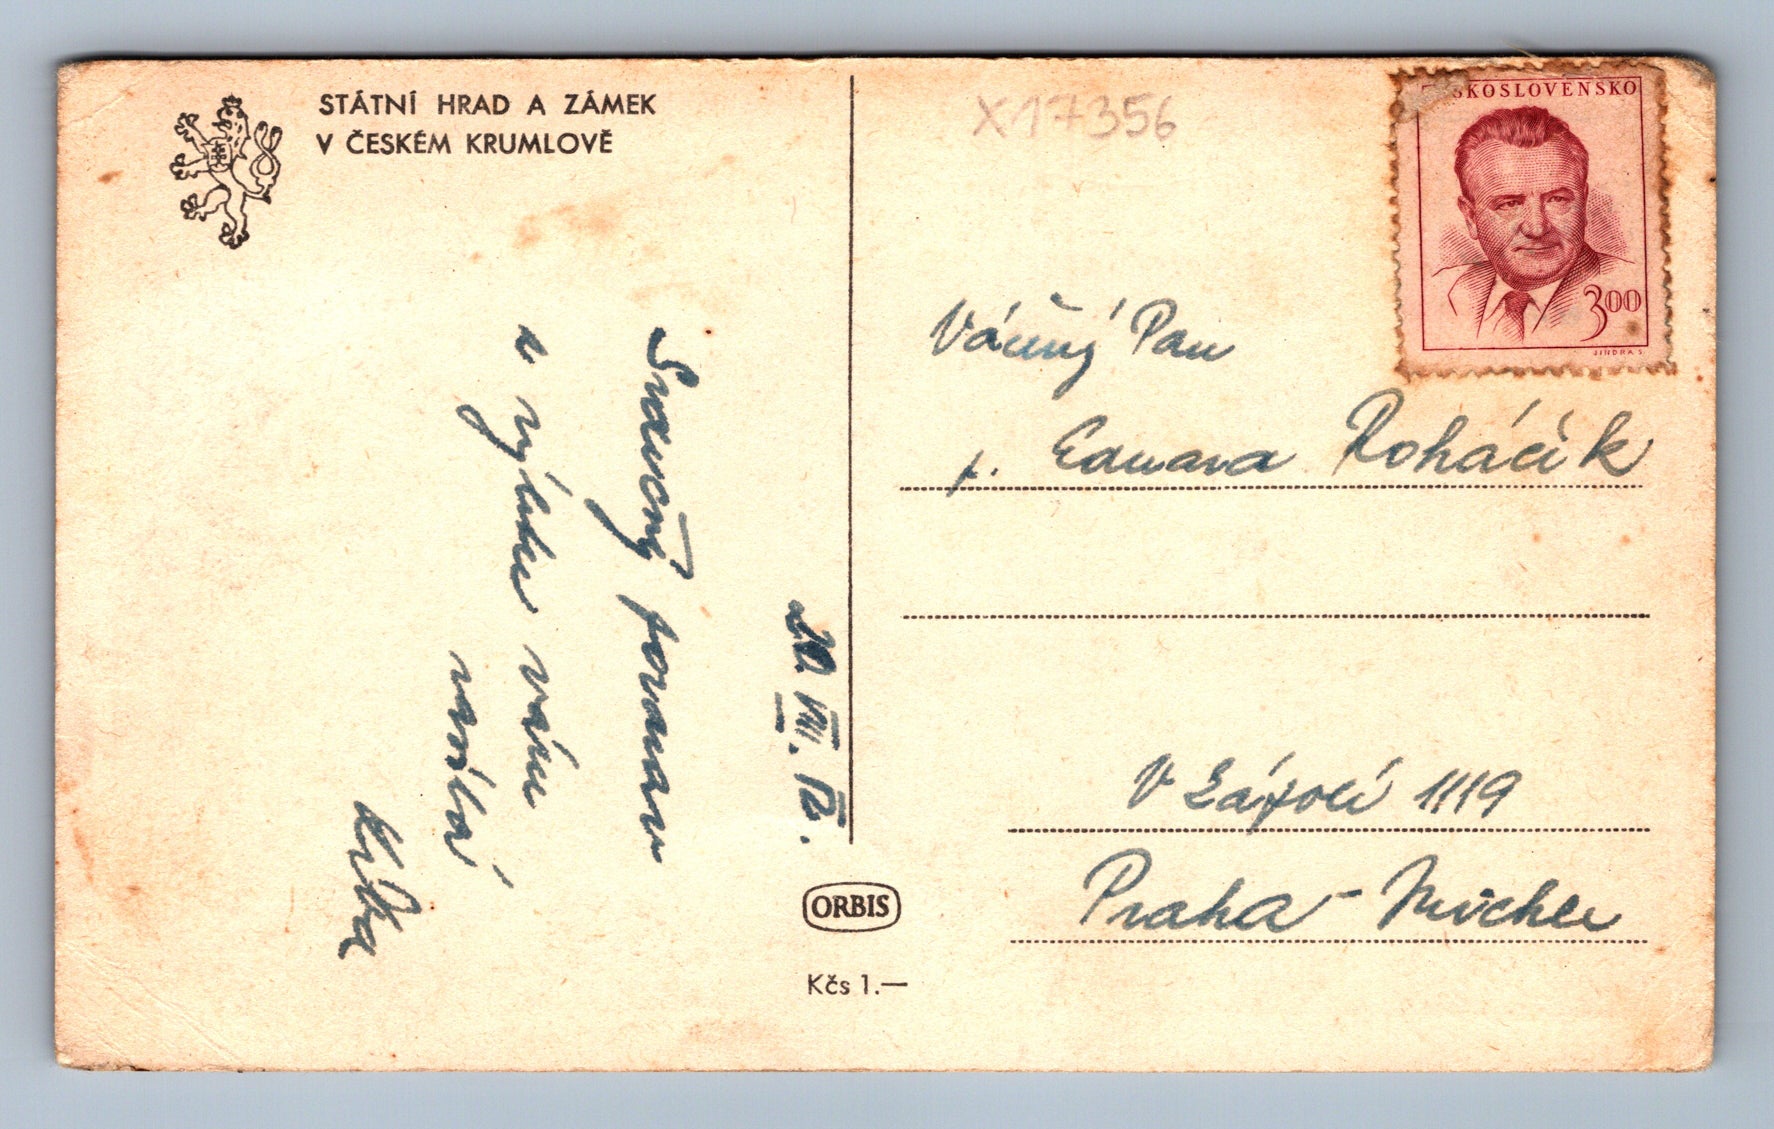 STÁTNÍ HRAD A ZÁMEK
V ČESKÉM KRUMLOVĚ
X17356
SKOSLOVENSKO
3.00
JINDRA S
Vážený Pan
p. Eduard Roháčík
V Zápolí 1119
Praha - Michle
Srdečný pozdrav
z výletu vám
zasílá
Jirka
20. VIII.
ORBIS
Kčs 1.—